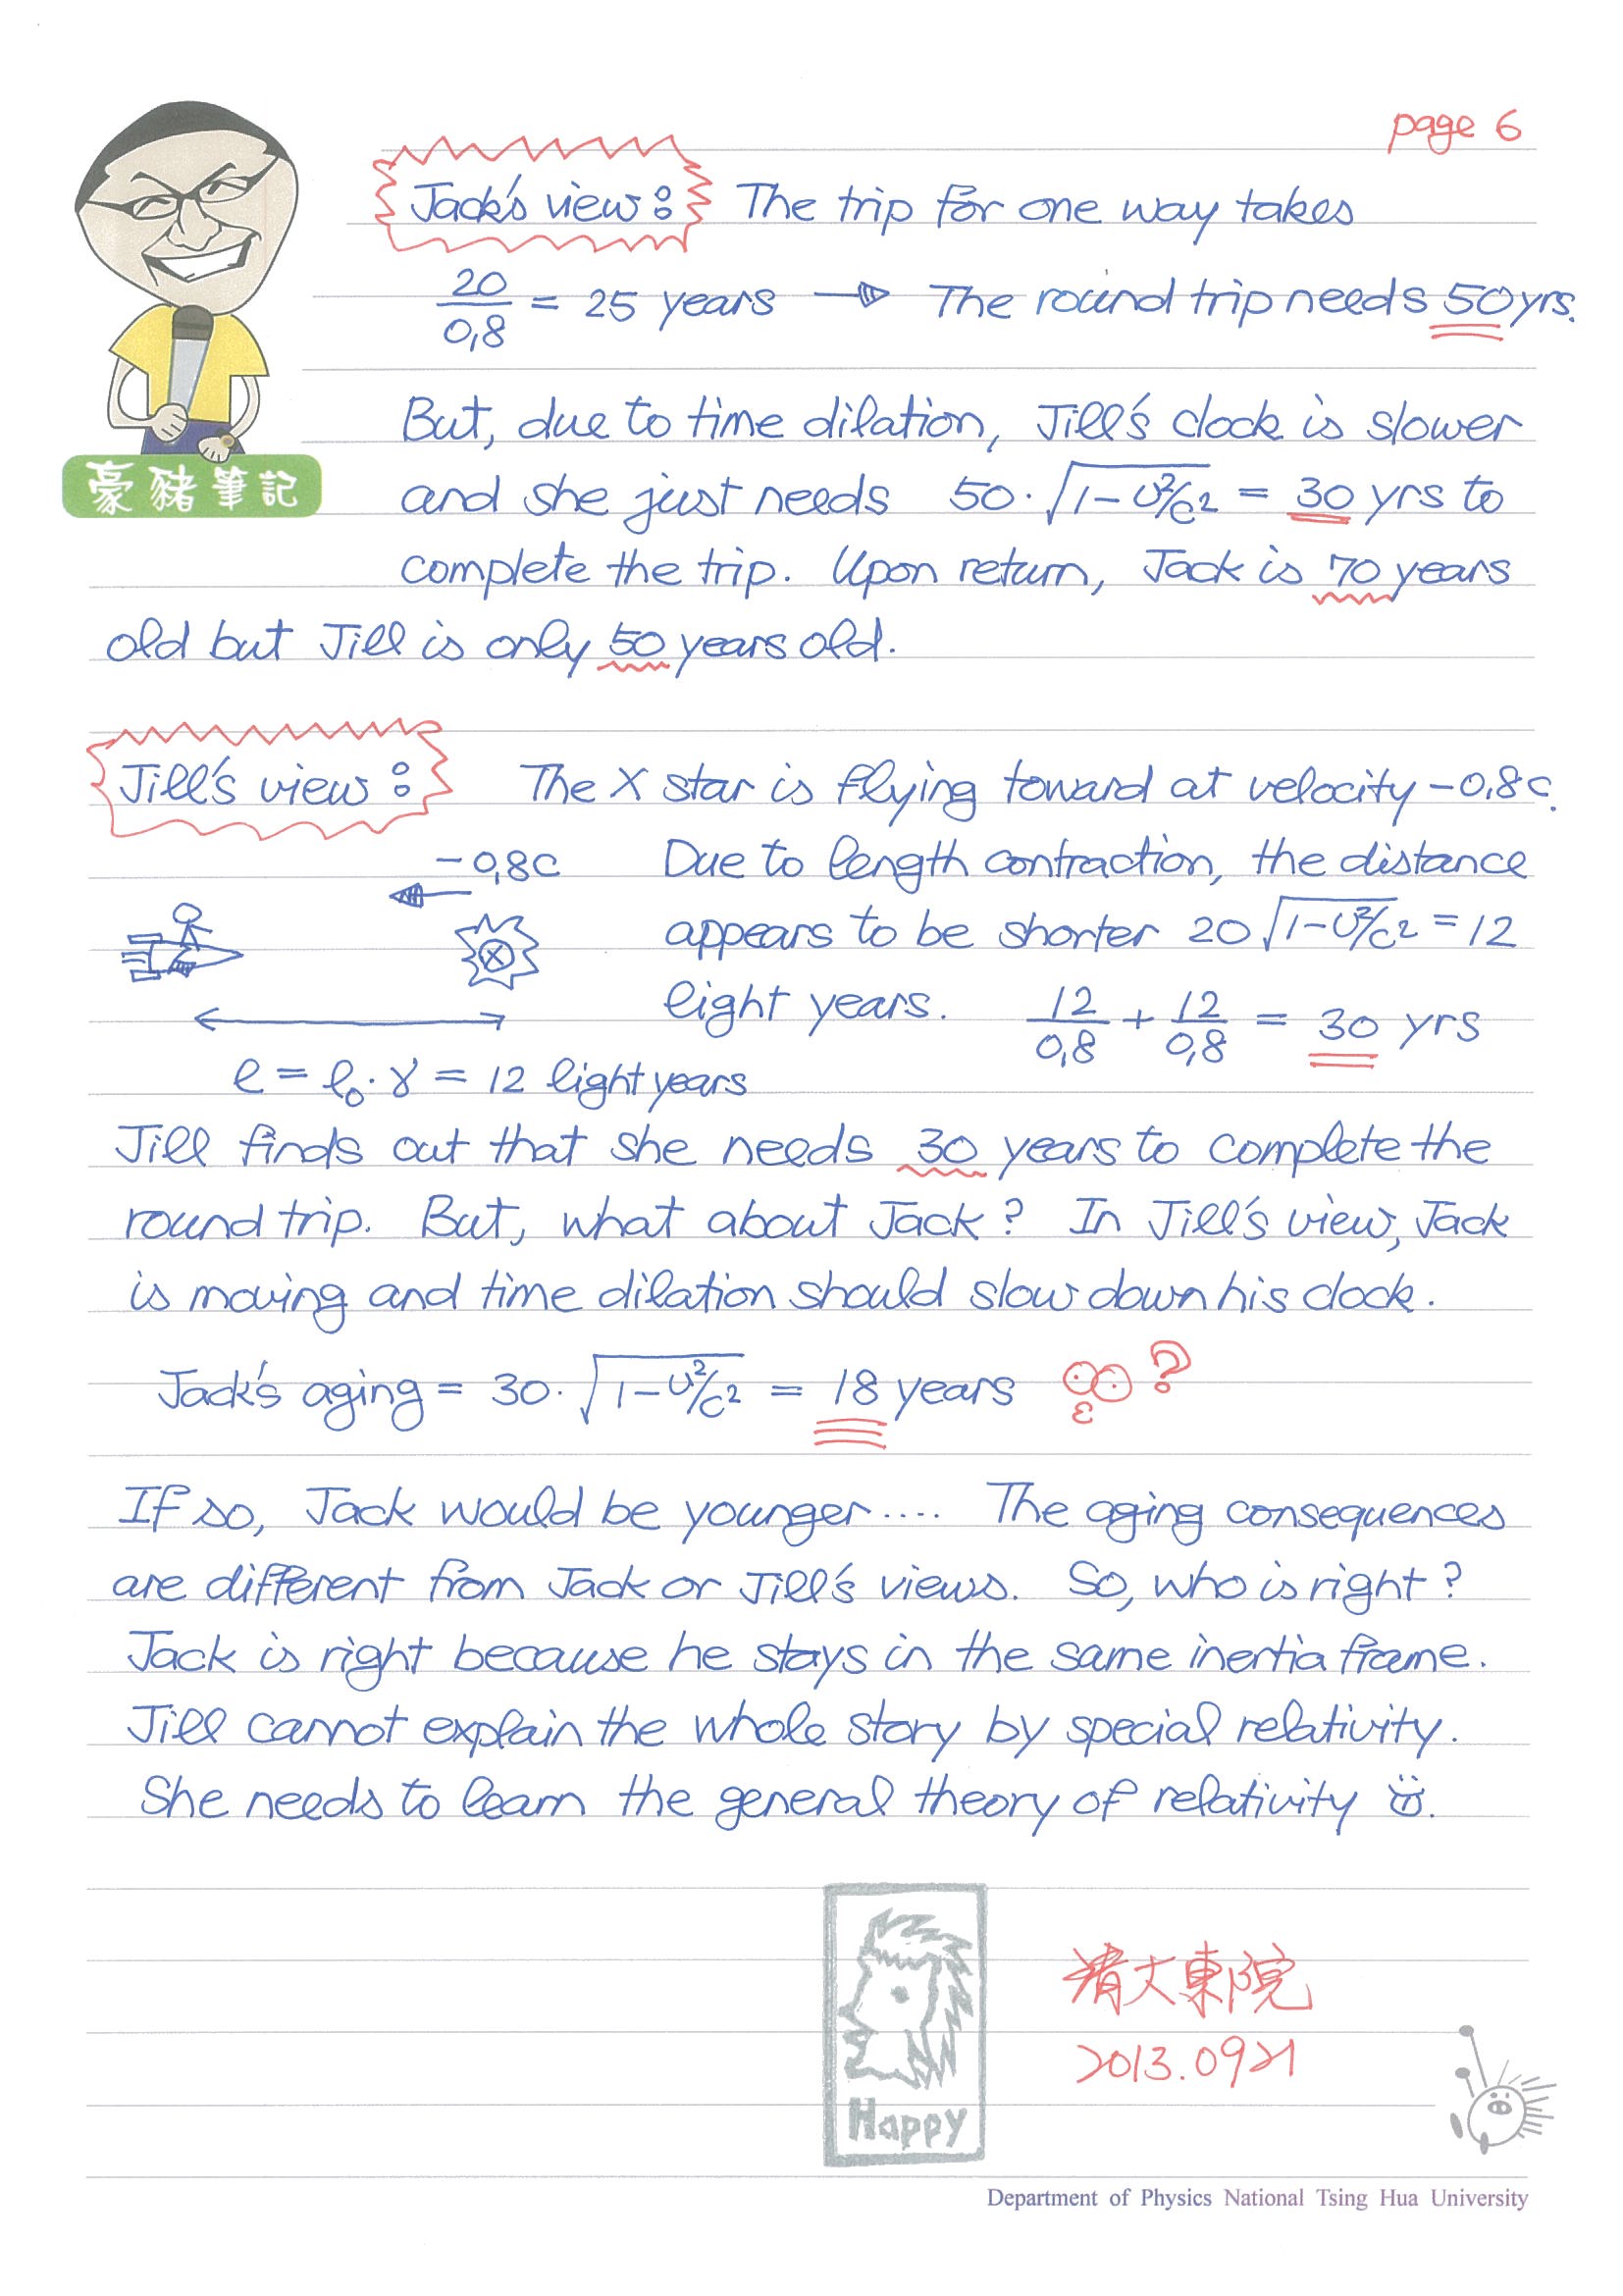 page 6
Jack's view: The trip for one way takes
20/0,8 = 25 years → The round trip needs 50 yrs.
But, due to time dilation, Jill's clock is slower
and she just needs 50·√1-v²/c² = 30 yrs to
complete the trip. Upon return, Jack is 70 years
豪豬筆記
old but Jill is only 50 years old.
Jill's view: The X star is flying toward at velocity -0,8c.
-0,8c Due to length contraction, the distance
appears to be shorter 20√1-v²/c² = 12
X
light years. 12/0,8 + 12/0,8 = 30 yrs
ℓ = ℓ₀·γ = 12 light years
Jill finds out that she needs 30 years to complete the
round trip. But, what about Jack? In Jill's view, Jack
is moving and time dilation should slow down his clock.
Jack's aging = 30·√1-v²/c² = 18 years ?
If so, Jack would be younger.... The aging consequences
are different from Jack or Jill's views. So, who is right?
Jack is right because he stays in the same inertia frame.
Jill cannot explain the whole story by special relativity.
She needs to learn the general theory of relativity ☺.
清大東院
2013.0921
Happy
Department of Physics National Tsing Hua University